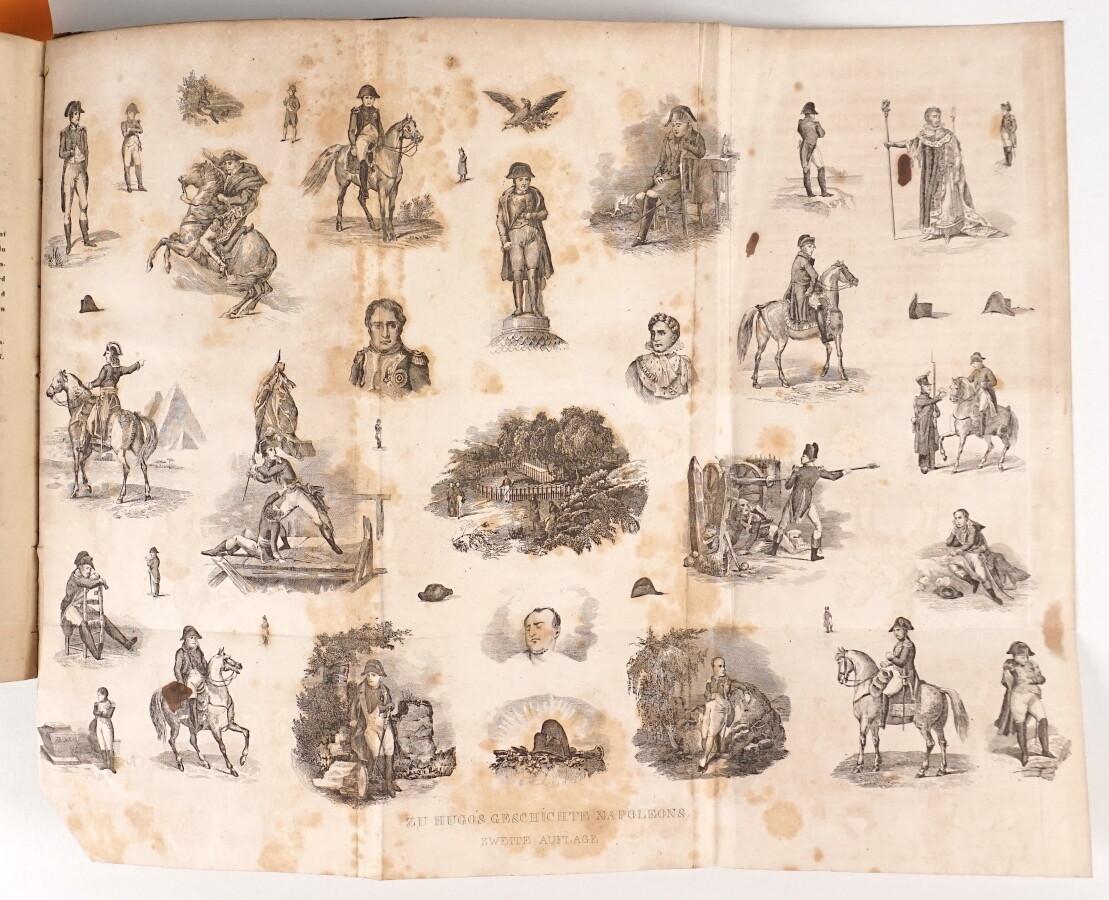 ZU HUGO'S GESCHICHTE NAPOLEONS
ZWEITE AUFLAGE